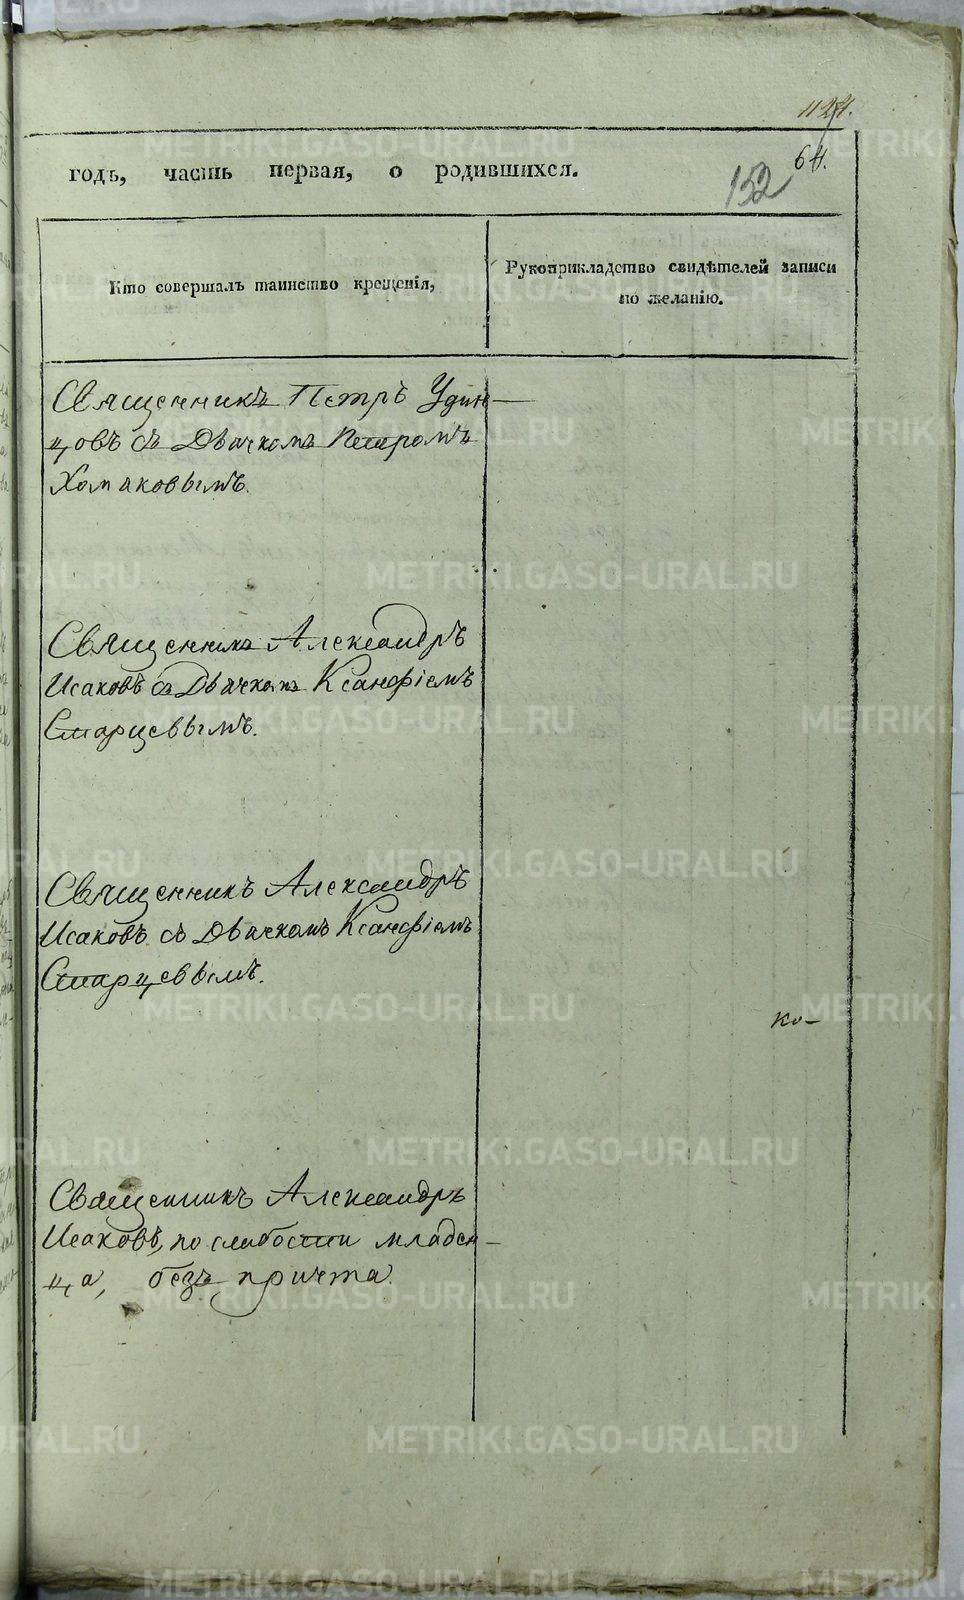 1124.
64.
152
годъ, часть первая, о родившихся.
Кто совершалъ таинство крещенія,
Рукоприкладство свидѣтелей записи
по желанію.
Священникъ Петръ Удин-
цовъ съ Дьячкомъ Петромъ
Хомяковымъ.
Священникъ Александръ
Исаковъ съ Дьячкомъ Ксанфіемъ
Старцевымъ.
Священникъ Александръ
Исаковъ съ Дьячкомъ Ксанфіемъ
Старцевымъ.
ко-
Священникъ Александръ
Исаковъ, по слабости младен-
ца, безъ причта.
METRIKI.GASO-URAL.RU